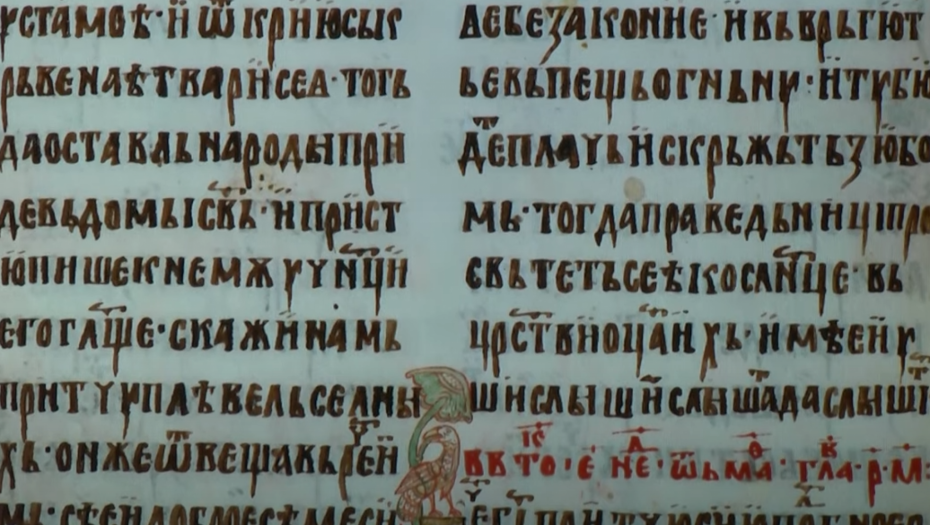 ѹстамоѣ · и ѿкрию ськ
рьвенаѣ твари сеа · тогь
да оставль народы при
де вь домь ісвь · и прист
юпише к немѫ ѹчнци
его глаще · скажи намь
притчѹ плѣвель селны
хь · онже ѿвещавь
дебезаконие · и вьврьгют
ье вь пещь огньнѹ · и тѹ бю
деть плачь и скрьжьть зюбо
мь · тогда праведьници про
свьтетьсе ѣко слнце · вь
црстви оца ихь · имѣеи ѹ
ши слыши слыша да слыши
в вто · е · не · ѿь ма · гла · р · м ·